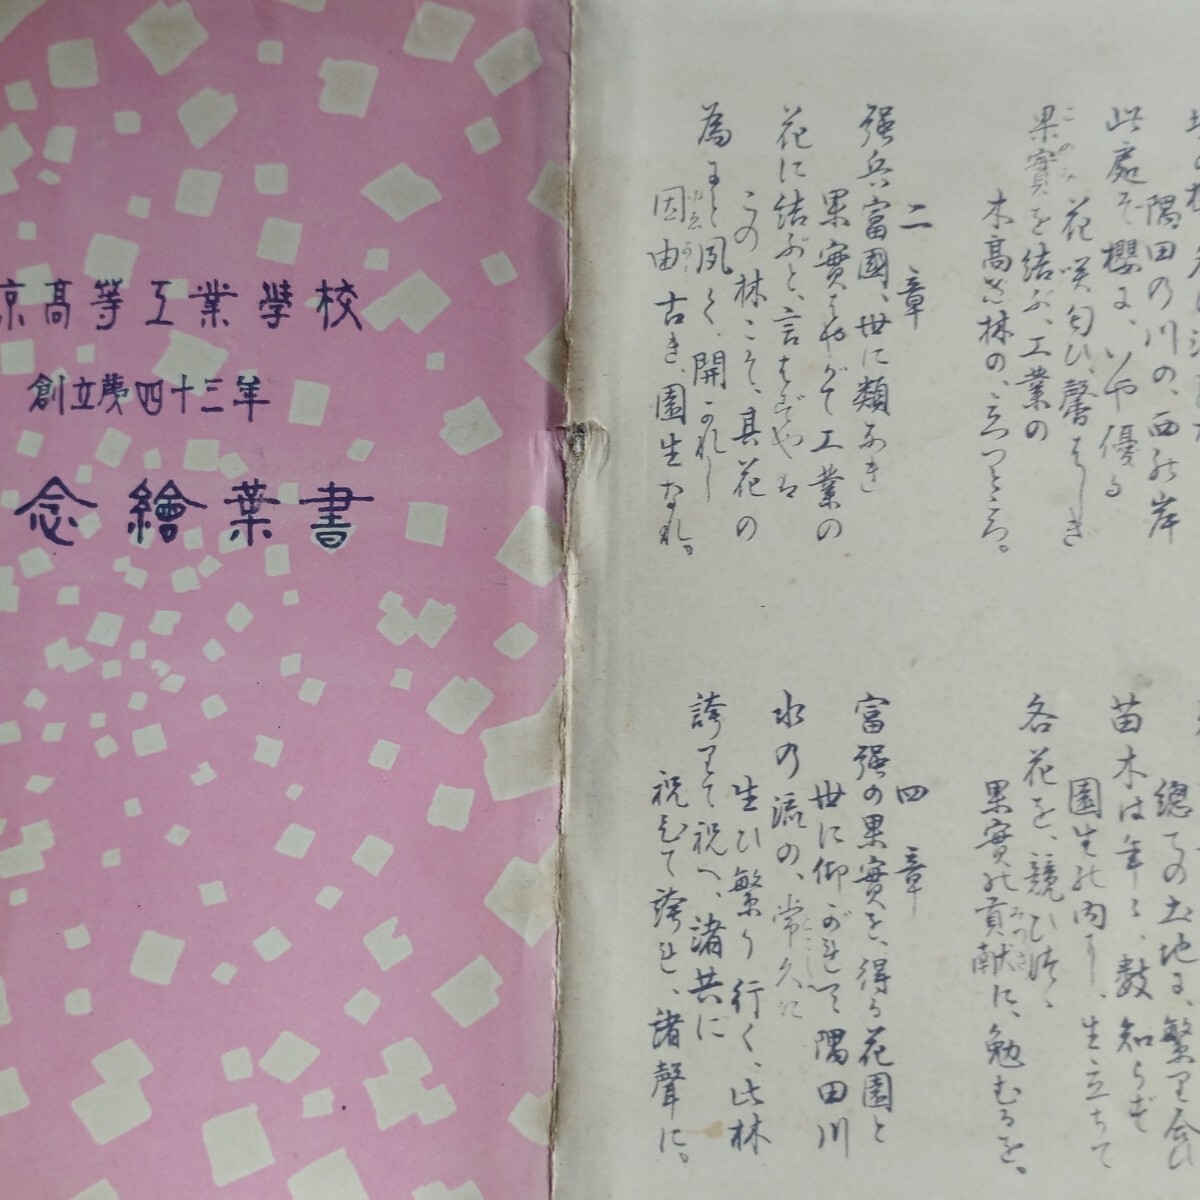 京高等工業學校
創立第四十三年
念繪葉書
隅田の川の、西の岸
此處ぞ櫻に、いや優る
花咲匂ひ、馨はしき
果實を結ぶ、工業の
木高き林の、立つところ。
二章
强兵富國、世に類なき
果實はやがて工業の
花に結ぶと、言はずやは
この林こそ、其花の
為にと夙く、開かれし
因由古き、園生なれ。
總ての土地に、繁り合ひ
苗木は年々、數知らず
園生の内に、生立ちて
各花を、競ひつゝ
果實の貢献に、勉むるを。
四章
富强の果實を、得る花園と
世に仰がれて隅田川
水の流の、常久に
生ひ繁り行く、此林
誇りて祝へ、諸共に
祝ひて誇れ、諸聲に。